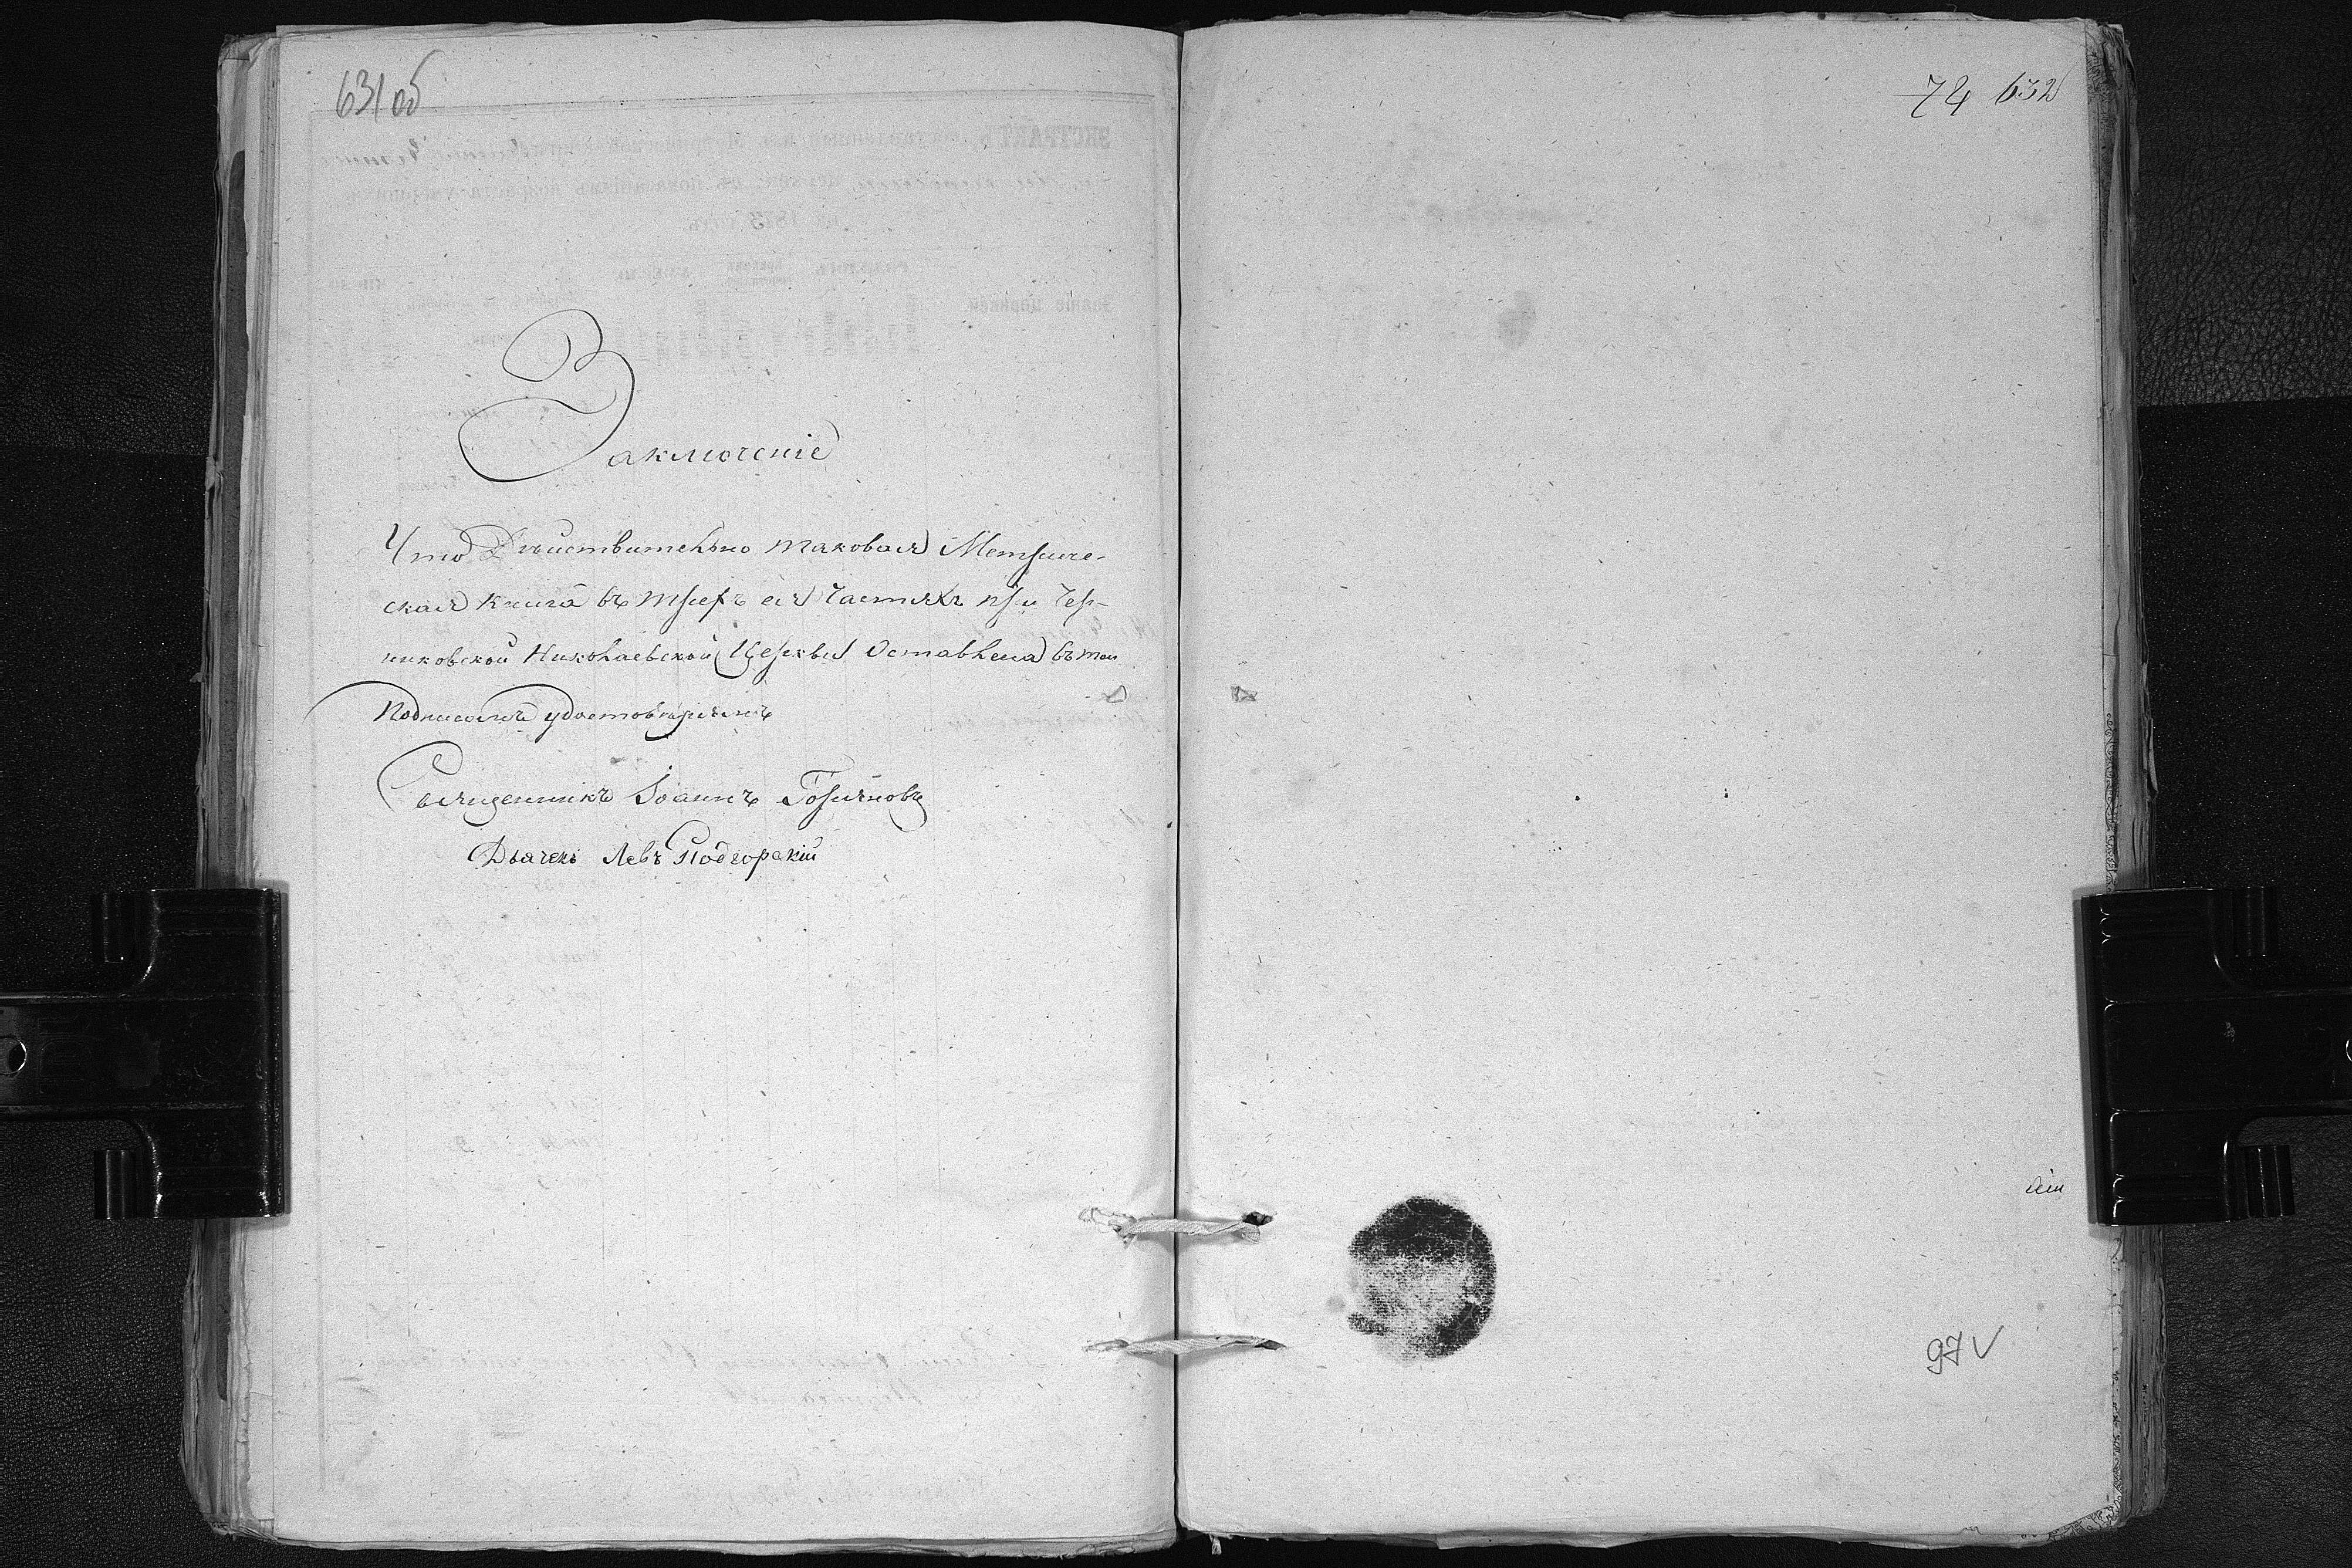 631 об
Заключеніе
Что Дѣйствительно таковая Метриче-
ская Книга въ трехъ ея Частяхъ при Чер-
никовской Николаевской Церквы Оставлена въ том
Подписомъ удостовѣряемъ
Священникъ Іоаннъ
Дьячекъ Левъ Подгорскій
74 632
97 V